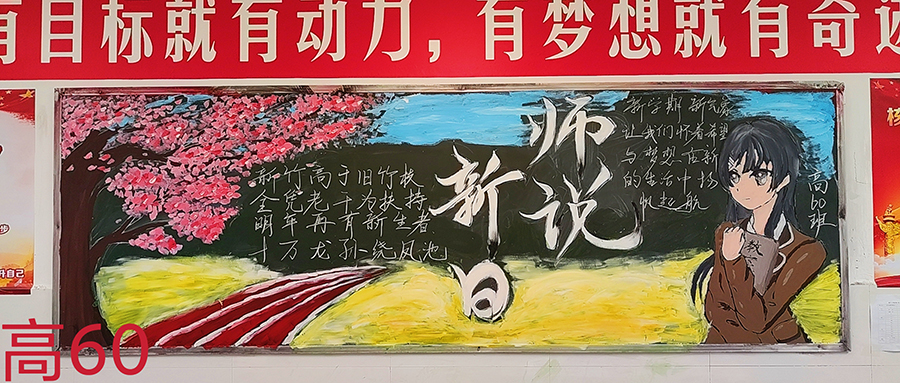 有目标就有动力,有梦想就有奇迹
师说
新
新竹高于旧竹枝
全凭老干为扶持
明年再有新生者
十万龙孙绕凤池
新学期 新气象
让我们怀着希望
与梦想在新
的生活中扬
帆起航
高60班
教
升自己
高60